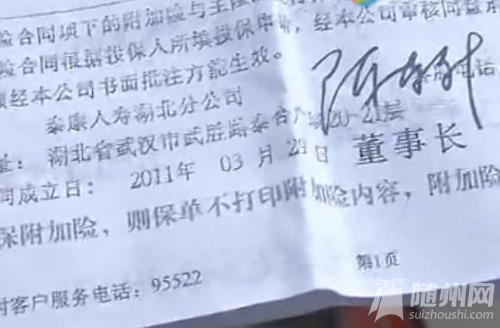 险合同项下的附加险与主险
险合同根据投保人所填投保申请，经本公司审核同意
经本公司书面批注方能生效。
泰康人寿湖北分公司
电话
址：湖北省武汉市武胜路泰合广场20-21层
同成立日：2011年 03 月 29日 董事长
保附加险，则保单不打印附加险内容，附加险
付客户服务电话：95522 第1页
随州网
suizhoushi.com